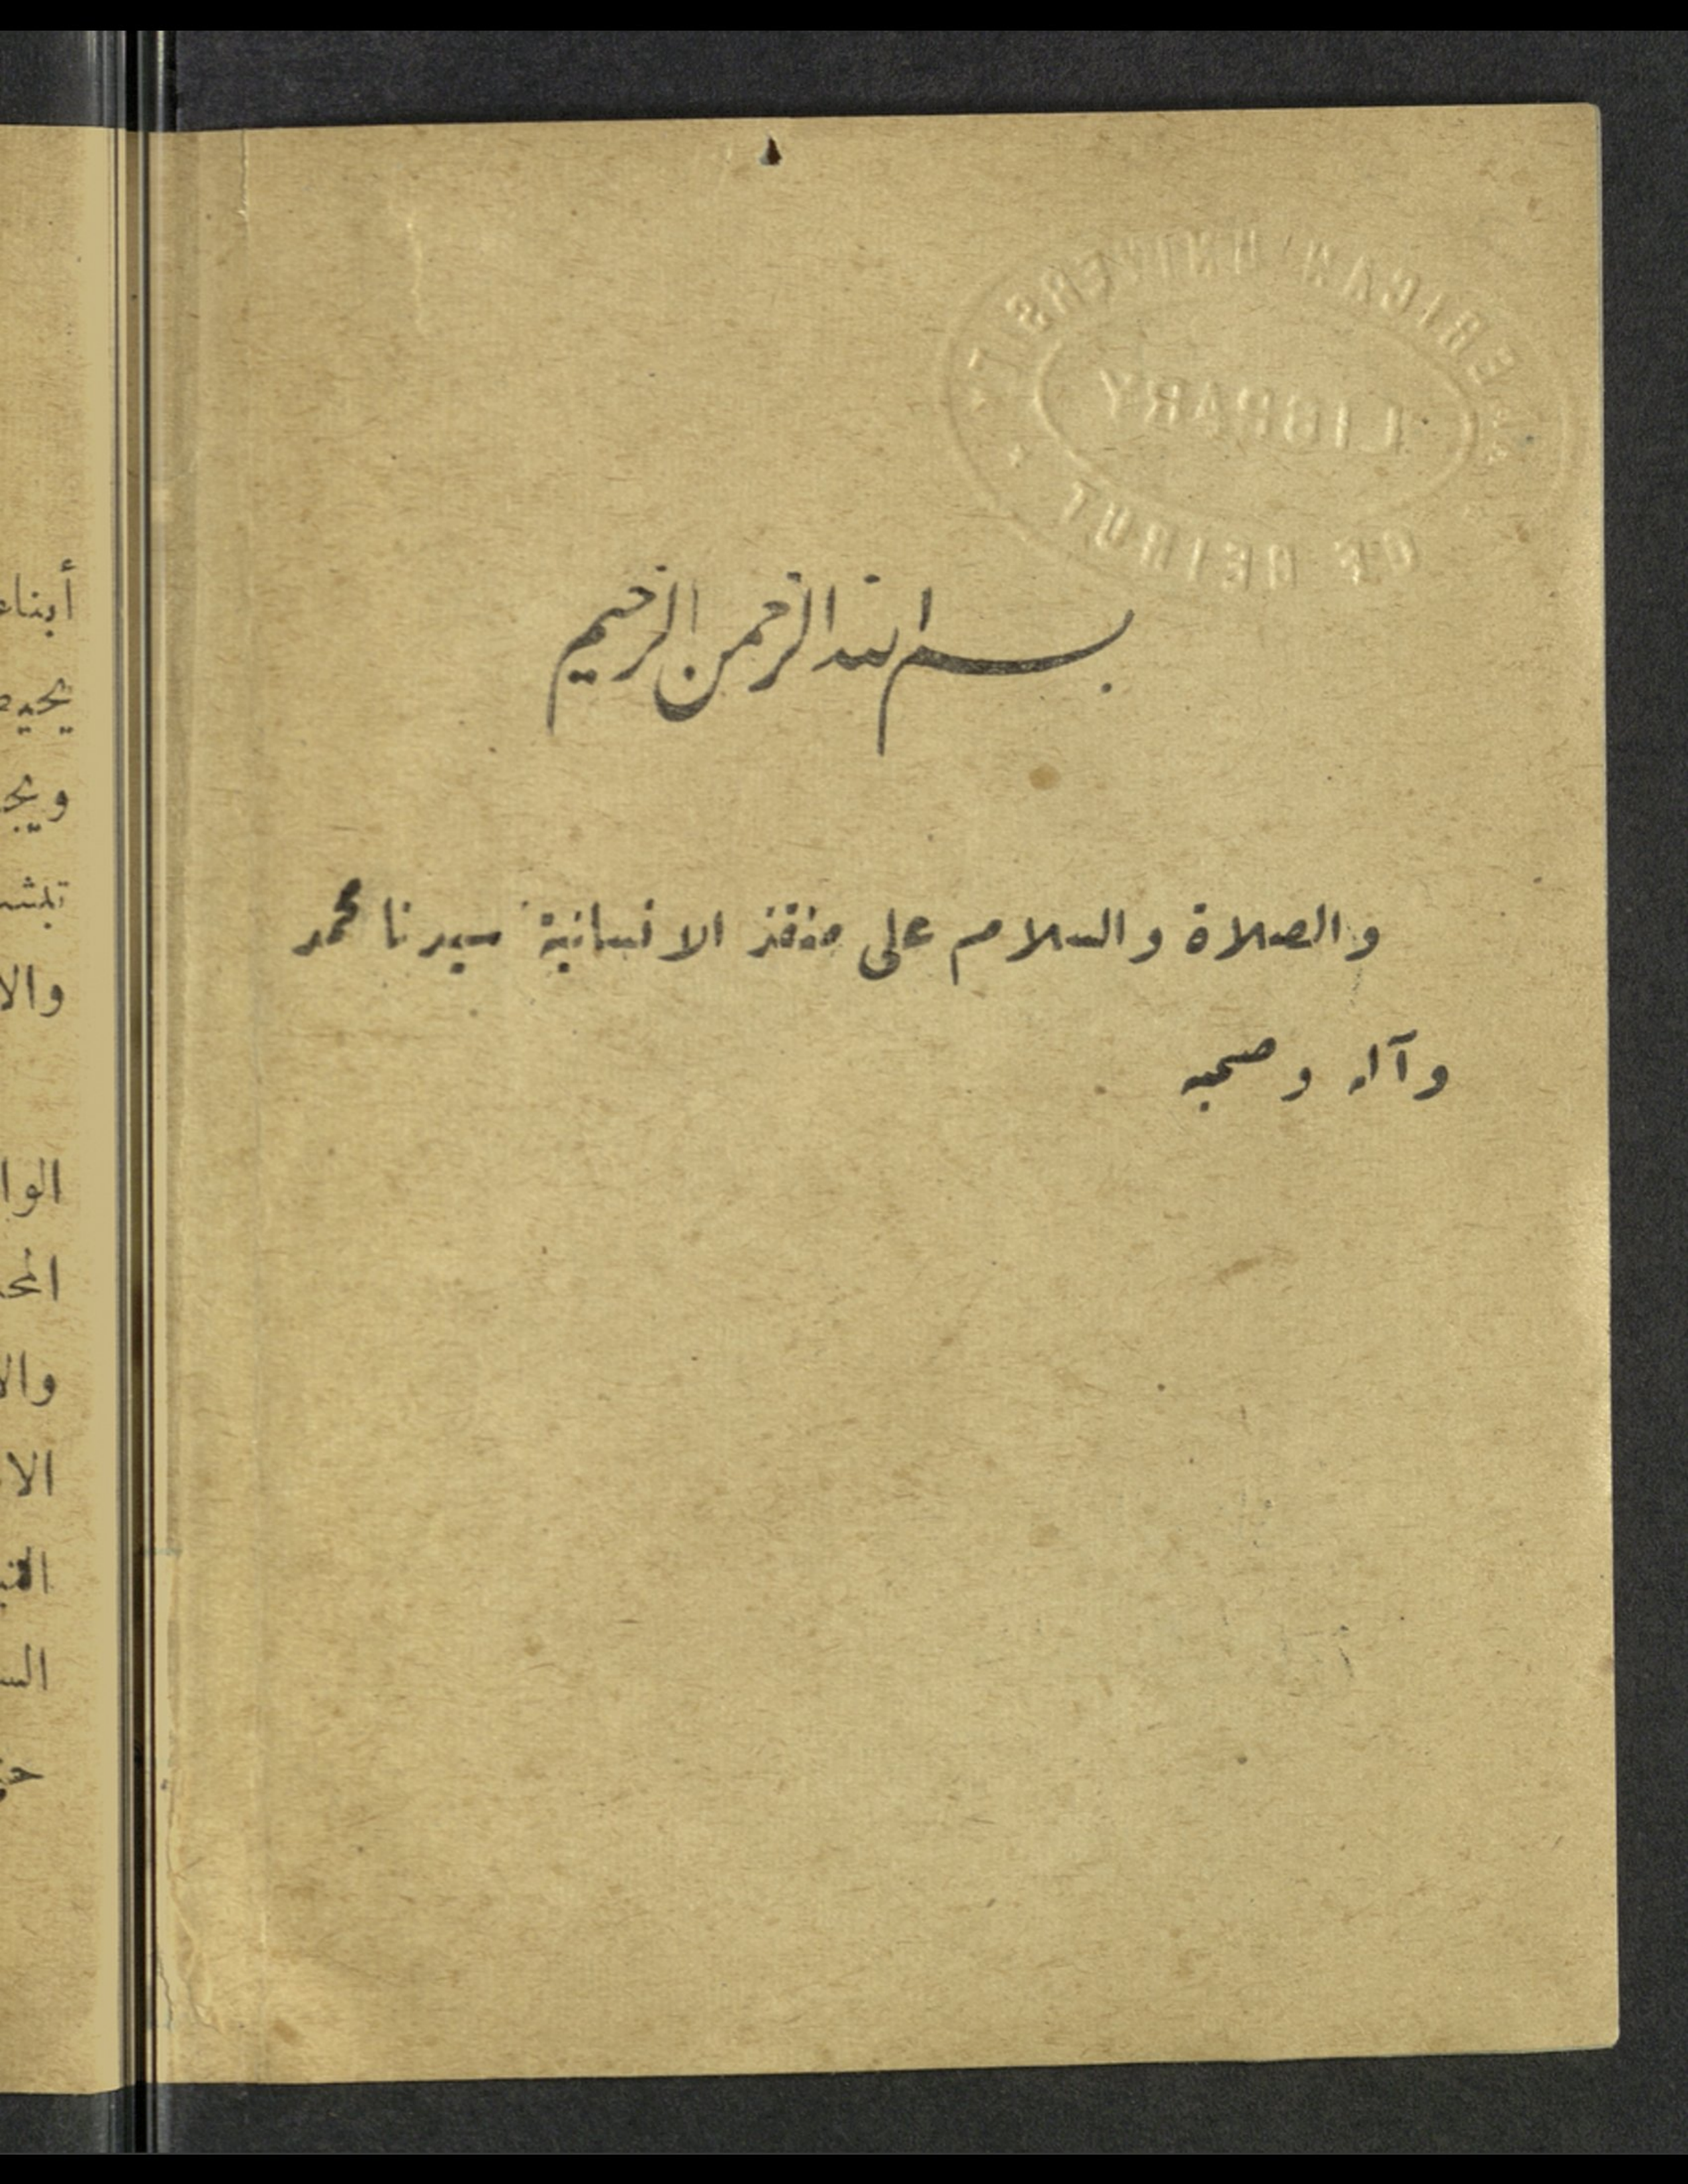 AMERICAN UNIVERSITY
LIBRARY
OF BEIRUT
بسم الله الرحمن الرحيم
والصلاة والسلام على منقذ الانسانية سيدنا محمد
وآله وصحبه